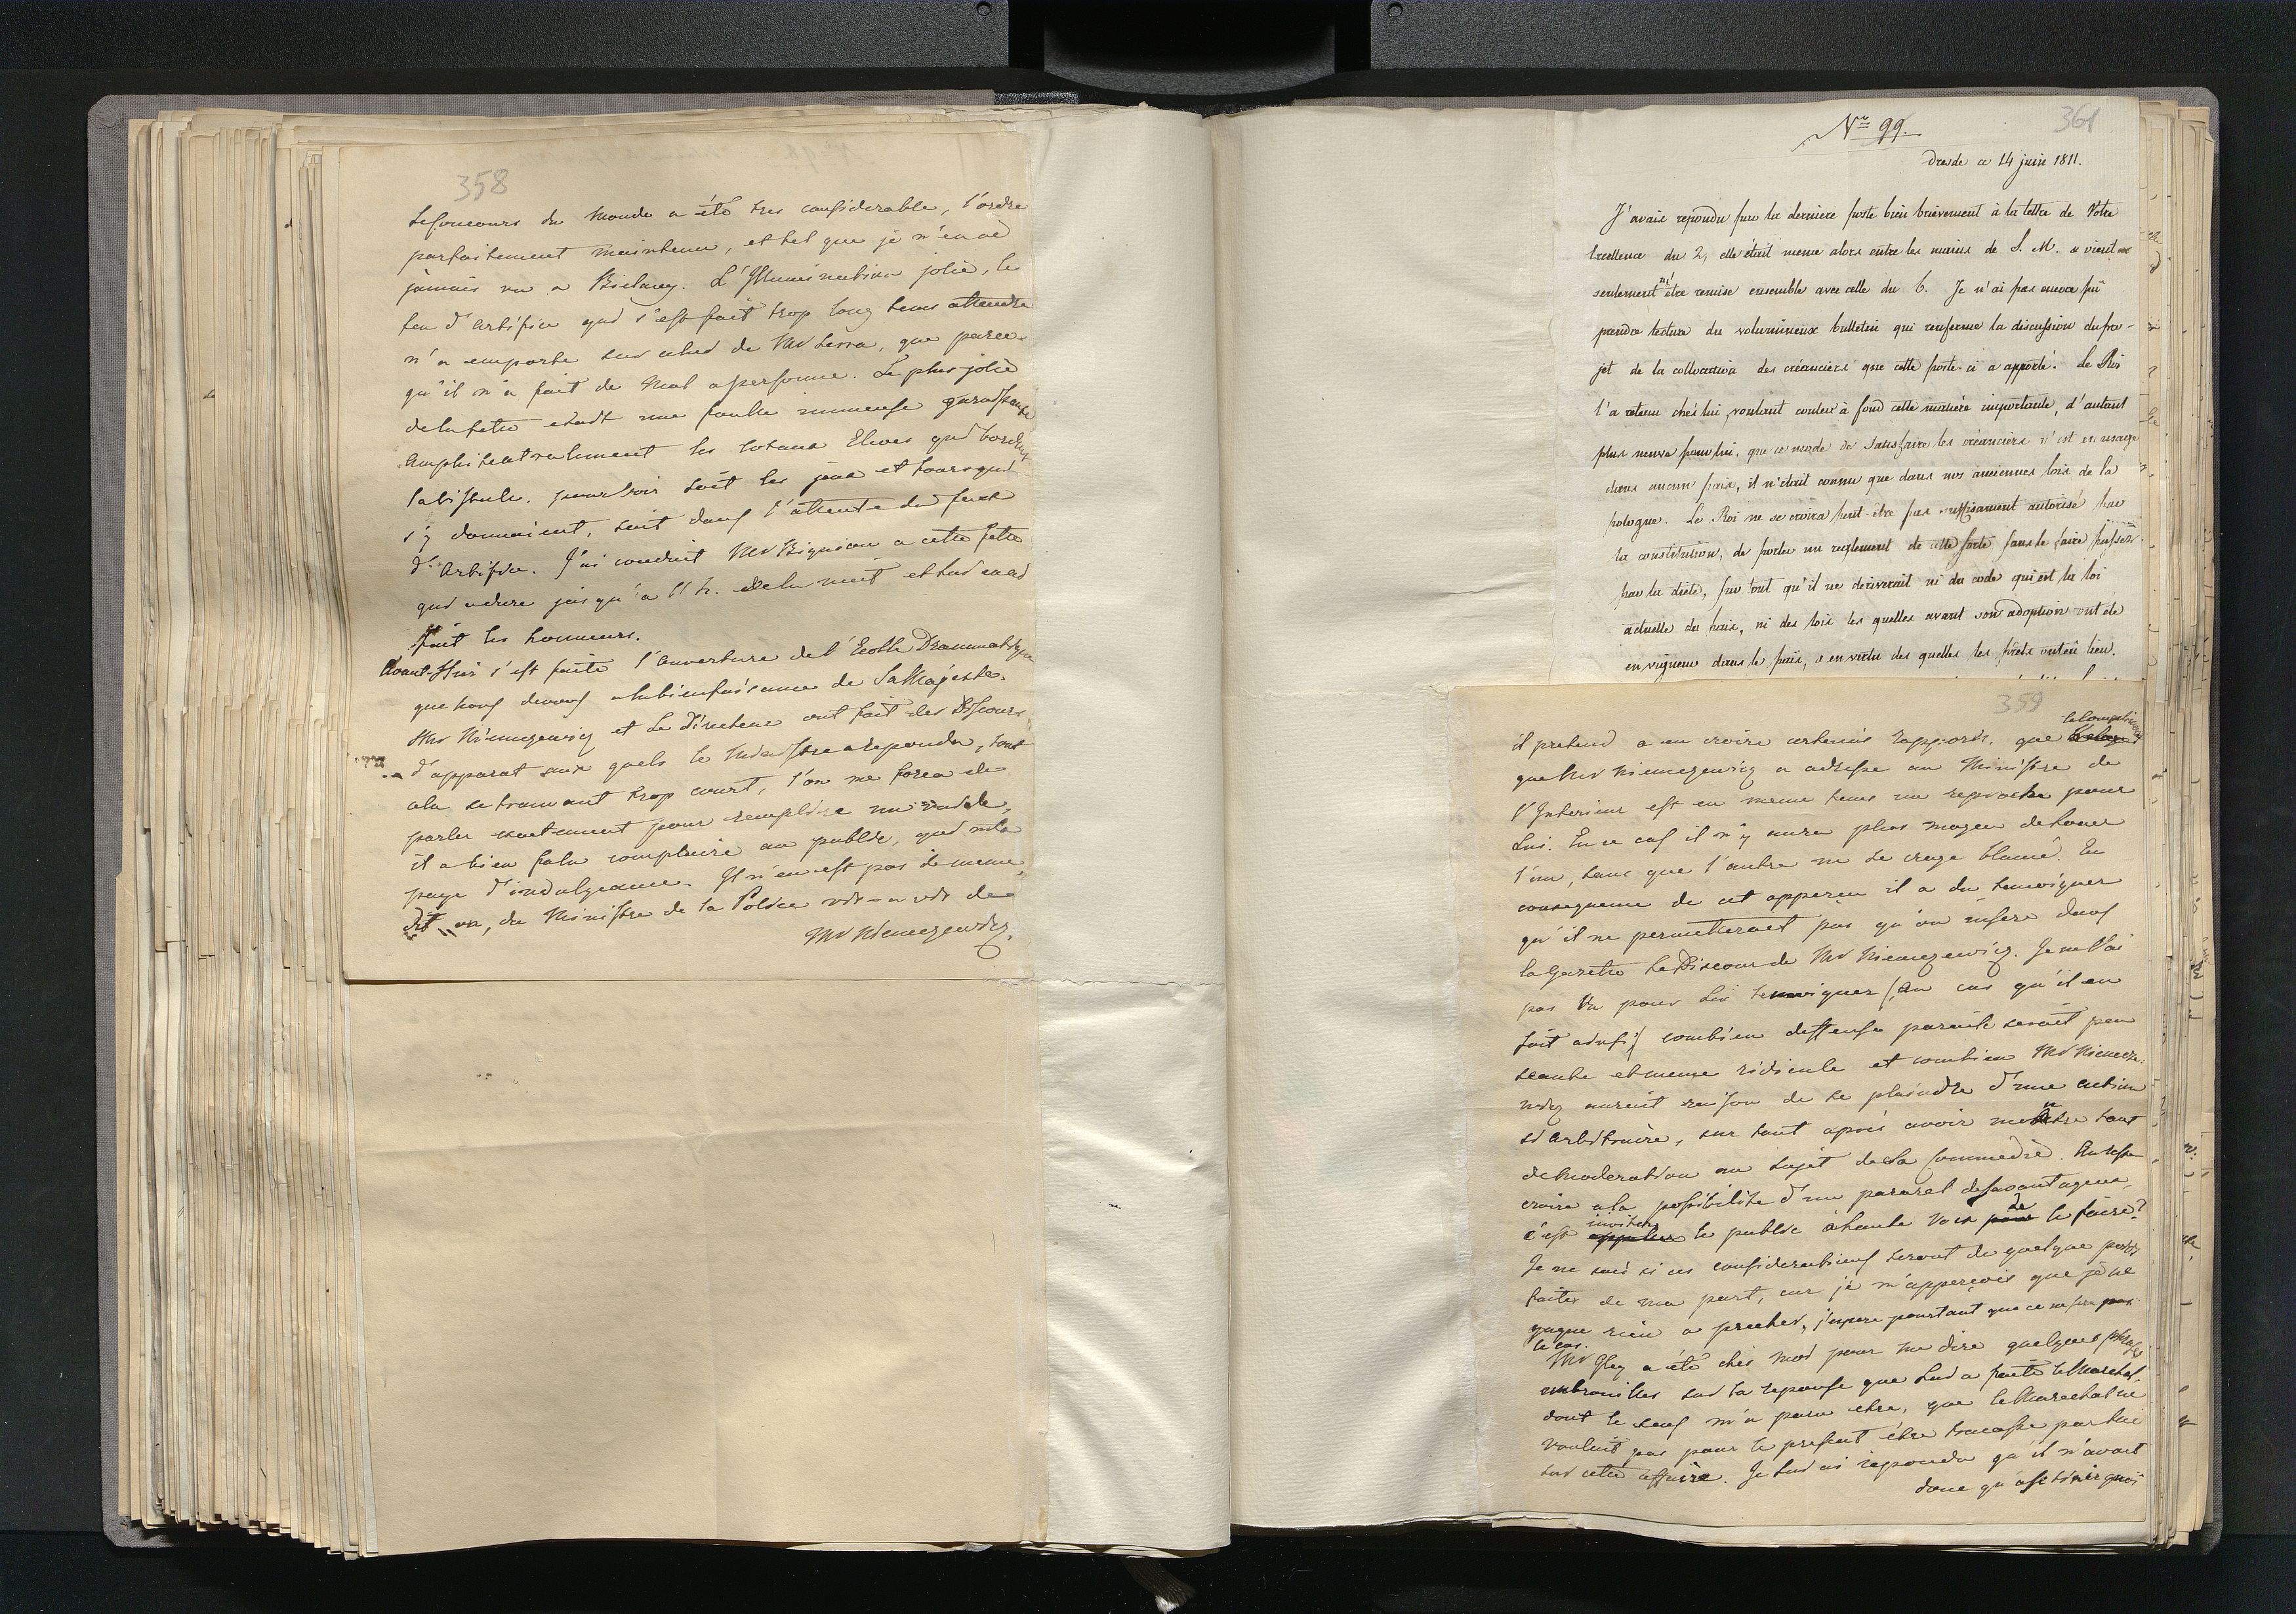 358
Le Concours du Monde a été tres considerable, l'ordre
parfaitement maintenu, et tel que je n'en ai
jamais vu a Bielany. L'Illumination jolie, le
feu d'artifice qui s'est fait trop long tems attendre
n'a emporté sur celui de Mr Lerra, que parce
qu'il n'a fait de mal a personne. Le plus jolie
de la fete etoit une foulle immense garnissant
Amphiteatralement les coteaux Elevés qui bordent
la Vistule, pour voir soit les jeux et tours qui
s'y donnaient, soit dans l'attente du feu
d'Artifice. J'ai conduit Mr Bignion a cette fete
qui a duré jusqu'a 11 h. de la nuit et lui en ai
fait les honneurs.
Avant-Hier s'est faite l'ouverture de l'Ecolle Drammatique
que nous devons a la bienfaisance de Sa Majesté.
Mr Niemczewicz et Le Directeur ont fait des Discours
d'apparat aux quels le Ministre a repondu, tout
cela se trouvant trop court, l'on me força de
parler exactement pour remplire un vuide,
il a bien falu complaire au public, qui m'a
payé d'indulgeance. Il n'en est pas de meme,
dit on, du Ministre de la Police vis-a vis de
Mr Niemczewicz,
361
Nro 99.
Dresde ce 14 juin 1811.
J'avais repondu par la derniere poste bien brievement à la lettre de Votre
Excellence du 2, elle étoit meme alors entre les mains de S. M. & vient
seulement m'être remise ensemble avec celle du 6. Je n'ai pas encore pû
prendre lecture du volumineux bulletin qui renferme la discussion du pro-
jet de la collocation des créanciers que cette poste-ci a apporté. Le Roi
l'a retenu chés lui, voulant couler à fond cette matiére importante, d'autant
plus neuve pour lui, que ce mode de satisfaire les créanciers n'est en usage
dans aucun païs, il n'étoit connu que dans nos anciennes lois de la
pologne. Le Roi ne se croira peut-être pas suffisament autorisé par
la constitution, de porter un reglement de cette sorte sans le faire passer
par la diéte, sur tout qu'il ne deriverait ni du code qui est la loi
actuelle du païs, ni des lois les quelles avant son adoption ont été
en vigueur dans le païs, & en vertu des quelles les prêts ont eû lieu.
359
il pretend a en croire certains rapports, que le compliment
que Mr Niemczewicz a adressé au Ministre de
l'Interieur est en meme tems un reproche pour
Lui. En ce cas il n'y aura plus moyen de louer
l'un, sans que l'autre ne se croye blamé. En
consequence de cet apperçu il a du temoigner
qu'il ne permetteroit pas qu'on insere dans
la Gazette le Discour de Mr Niemczewicz. Je ne l'ai
pas vu pour lui temoigner (au cas qu'il en
soit ainsi) combien deffense pareile seroit peu
seante et meme ridicule et combien Mr Niemcze-
wicz auroit raison de se plaindre d'une action
si arbitraire, sur tout après avoir montre tant
de Moderation au sujet de la Commedie.
croire a la possibilité d'un pararel desavantageux,
c'est inviter le public à haute voix de le faire?
Je ne sais si ces considerations seront de quelque poids
faites de ma part, car je m'apperçois que je ne
gagne rien a precher, j'espere pourtant que ce ne sera pas
le cas.
Mr Gley a été chés moi pour me dire quelques phrases
embrouillées sur la reponse que lui a faite le Marechal,
dont le sens m'a paru etre, que le Marechal ne
vouloit pas pour le present être tracassé par lui
sur cette affaire. Je lui ai repondu qu'il n'avoit
donc qu'a se tenir quoi